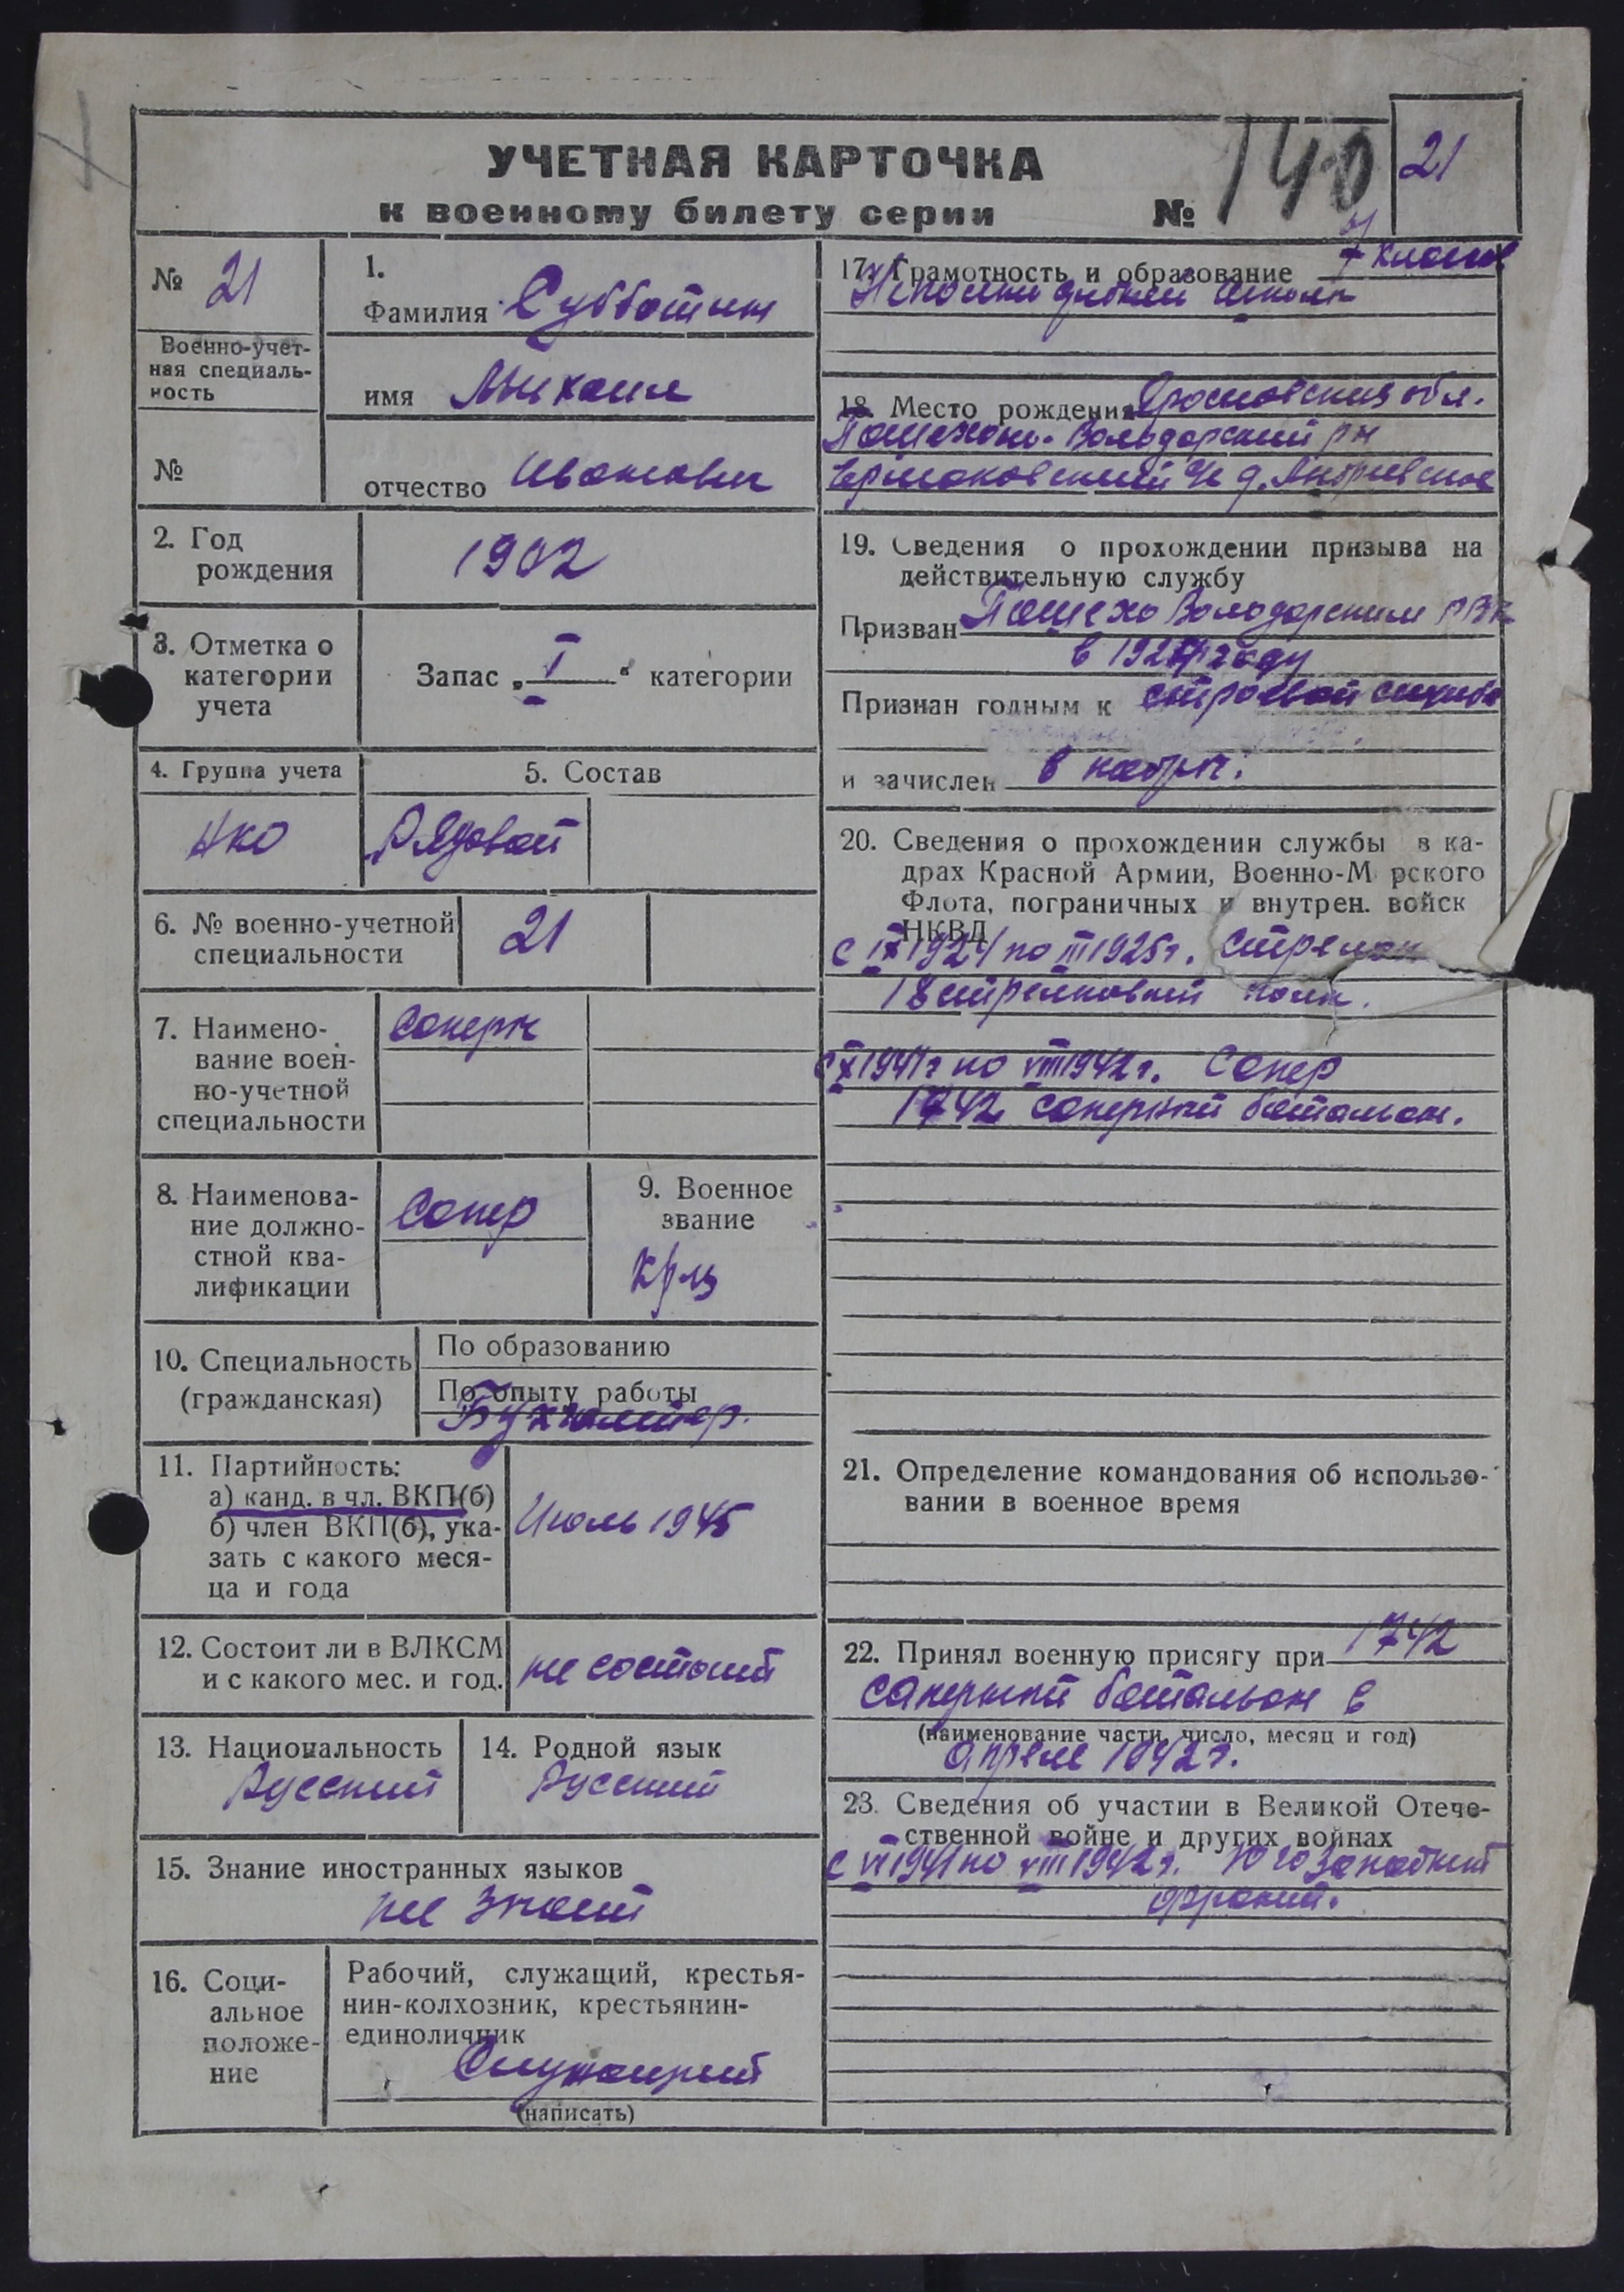 УЧЕТНАЯ КАРТОЧКА
к военному билету серии № 140
21
№ 21
Военно-учет-
ная специаль-
ность
№
1.
Фамилия Субботин
имя Михаил
отчество Иванович
2. Год
рождения
1902
3. Отметка о
категории
учета
Запас „ I “ категории
4. Группа учета
НКО
5. Состав
Рядовой
6. № военно-учетной
специальности
21
7. Наимено-
вание воен-
но-учетной
специальности
Саперн
8. Наименова-
ние должно-
стной ква-
лификации
Сапер
9. Военное
звание
Кр-ц
10. Специальность
(гражданская)
По образованию
По опыту работы
Бухгалтер.
11. Партийность:
а) канд. в чл. ВКП(б)
б) член ВКП(б), ука-
зать с какого меся-
ца и года
Июль 1945
12. Состоит ли в ВЛКСМ
и с какого мес. и год.
не состоит
13. Национальность
Русский
14. Родной язык
Русский
15. Знание иностранных языков
не знает
16. Соци-
альное
положе-
ние
Рабочий, служащий, крестья-
нин-колхозник, крестьянин-
единоличник
Служащий
(написать)
17. Грамотность и образование 7 классов
средней школы
18. Место рождения Ярославская обл.
Пошехоно-Володарский рн
Ермаковский с/с д. Андреевское
19. Сведения о прохождении призыва на
действительную службу
Призван Пошехо Володарским РВК
в 1924 году
Признан годным к строевой службе
и зачислен в
20. Сведения о прохождении службы в ка-
драх Красной Армии, Военно-М рского
Флота, пограничных и внутрен. войск
НКВД
с IX 1924 по III 1925 г. стрелок
18 стрелковый полк.
с X 1941 г по VIII 1942 г. Сапер
1742 саперный батальон.
21. Определение командования об использо-
вании в военное время
22. Принял военную присягу при 1742
саперный батальон в
(наименование части, число, месяц и год)
апреле 1942 г.
23. Сведения об участии в Великой Отече-
ственной войне и других войнах
с VI 1941 по VIII 1942 г. Юго Западный
фронт.